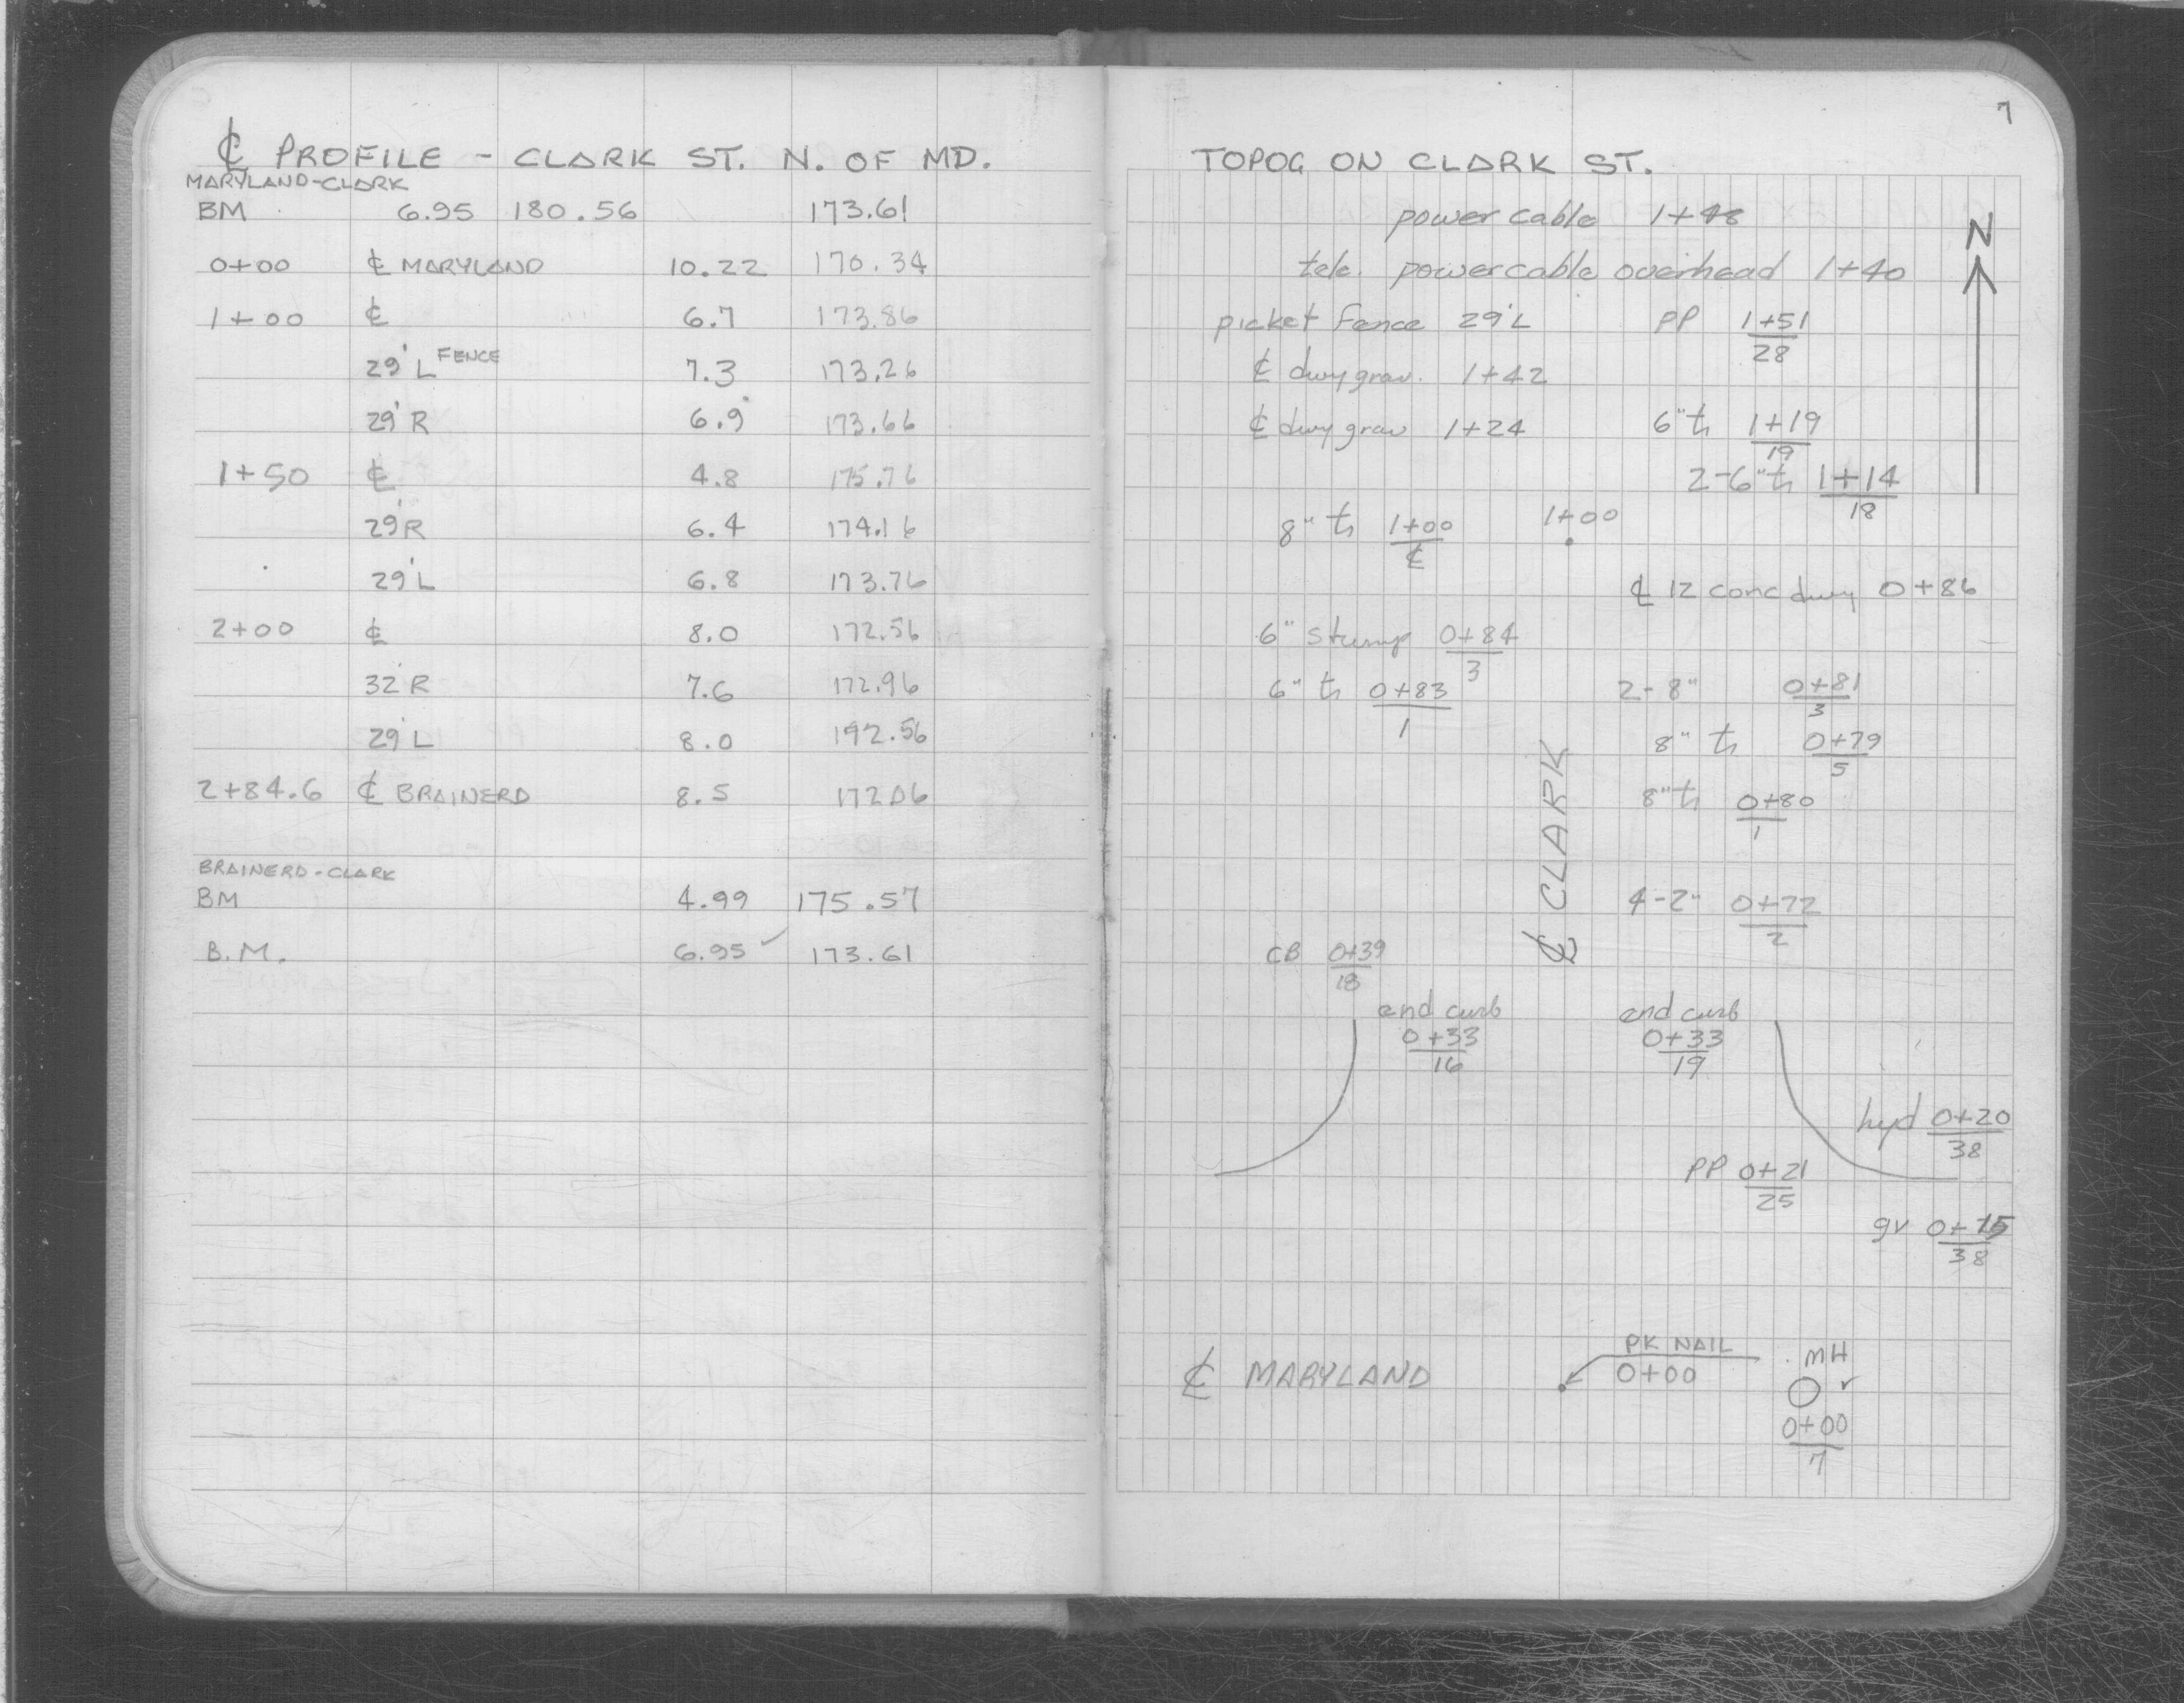 ℄ PROFILE - CLARK ST. N. OF MD.
MARYLAND-CLARK
BM 6.95 180.56 173.61
0+00 ℄ MARYLAND 10.22 170.34
1+00 ℄ 6.7 173.86
29' L FENCE 7.3 173.26
29' R 6.9 173.66
1+50 ℄ 4.8 175.76
29' R 6.4 174.16
29' L 6.8 173.76
2+00 ℄ 8.0 172.56
32' R 7.6 172.96
29' L 8.0 192.56
2+84.6 ℄ BRAINERD 8.5 172.06
BRAINERD-CLARK
BM 4.99 175.57
B.M. 6.95 ✓ 173.61
7
TOPOG ON CLARK ST.
N
power cable 1+48
tele. power cable overhead 1+40
picket fence 29' L PP 1+51
28
℄ dwy grav. 1+42
℄ dwy grav 1+24 6" tr 1+19
19
2-6" tr 1+14
18
8" tr 1+00 1+00
℄
℄ 12 conc dwy 0+86
6" stump 0+84
3
6" tr 0+83 2-8" 0+81
1 3
8" tr 0+79
5
8" tr 0+80
1
℄ CLARK
4-2" 0+72
2
CB 0+39
18
end curb end curb
0+33 0+33
16 19
hyd 0+20
38
PP 0+21
25
gv 0+15
38
PK NAIL MH
℄ MARYLAND 0+00
0+00
7